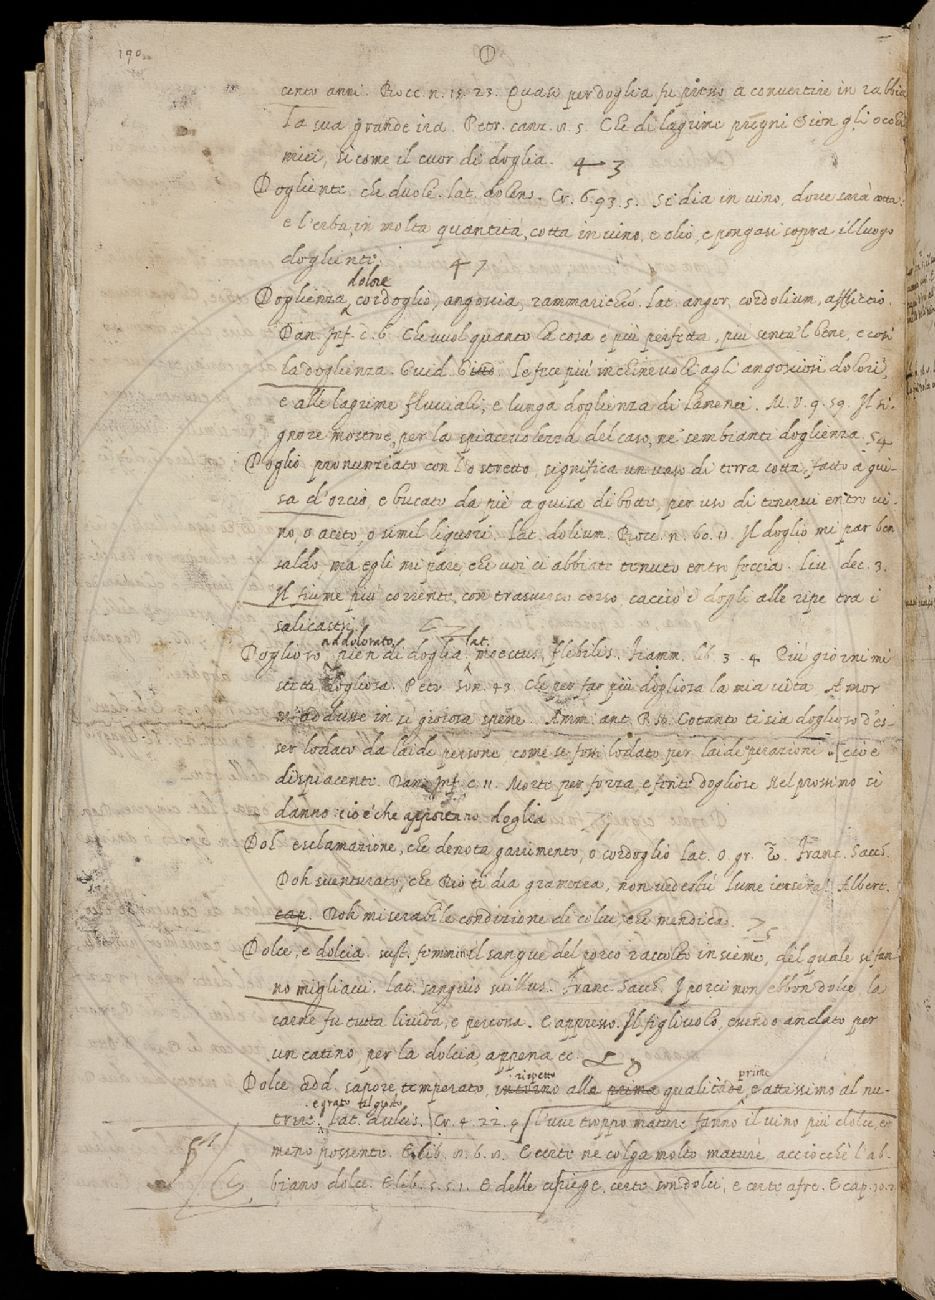 190
cento anni. Bocc. n. 15. 23. Quasi per doglia fu presso a convertire in rabbia
la sua grande ira. Petr. canz. 8. 5. Che di lagrime pregni Sien gli occhi
miei, si come il cuor di doglia. 43
Dogliente. che duole. lat. dolens. Cr. 6. 93. 5. Si dia in vino, dove sarà cotta.
e l'erba, in molta quantità, cotta in vino, e olio, e pongasi sopra il luogo
dogliente. 47
dolore
Doglienza, cordoglio, angoscia, rammarichio. lat. angor, cordolium, afflictio.
Dan. Inf. c. 6. Che vuol quanto la cosa è più perfetta, più senta 'l bene, e così
la doglienza. Guid. G. Le fece più inchinevoli agli angosciosi dolori,
e alle lagrime fluviali, e lunga doglienza di lamenti. M. V. 9. 59. Il si-
gnore mostrò, per la spiacevolezza del caso, ne' sembianti doglienza. 54
Doglio pronunziato con l'o stretto, significa un vaso di terra cotta, fatto a gui-
sa d'orcio, e bucato da piè a guisa di botte, per uso di tenervi entro vi-
no, o aceto, o simil liquori. lat. dolium. Bocc. n. 60. 11. Il doglio mi par ben
saldo ma egli mi pare, che voi ci abbiate tenuto entro feccia. Liv. dec. 3.
Il fiume più corrente, con trasverso corso, cacciò i dogli alle ripe tra i
salicastri.
addolorato lat.
Doglioso pien di doglia. moestus, flebilis. Fiamm. lib. 3. 4. Più giorni mi
stetti dogliosa. Petr. Son. 43. Che per far più dogliosa la mia vita Amor
m'addusse in sì gioiosa spene. Amm. ant. R 50. Cotanto ti sia doglioso d'es-
ser lodato da laide persone come se fossi lodato per laide operazioni. [cioè
dispiacente. Dan. Inf. c. 11. Morte per forza, e ferite dogliose Nel prossimo si
danno cioè che apportano doglia
Doh esclamazione, che denota garrimento, o cordoglio lat. o gr. ὦ. Franc. Sacch.
Doh sventurato, che Dio ti dia gramezza, non vedestù lume iersera! Albert.
cap. Doh miserabile condizione di colui, che mendica. 75
Dolce, e dolcia. sust. femmin. il sangue del porco raccolto insieme, del quale si fan-
no migliacci. lat. sanguis suillus. Franc. Sacch. I porci non ebbon dolce la
carne fu tutta livida, e persona. E appresso. Il figliuolo, essendo andato per
un catino, per la dolcia, appena ec.
rispetto prime
Dolce, add. sapore temperato, intorno alla prima qualitade, e attissimo al nu-
e grato al gusto
trire. lat. dulcis. Cr. 4. 22. 9. L'uve troppo mature fanno il vino più dolce, e
meno possente. E lib. 8. 6. 8. E certe ne colga molto mature, acciocchè l'ab-
biano dolce. E lib. 5. 5. 1. E delle ciriege, certe son dolci, e certe afre. E cap. 10. 2